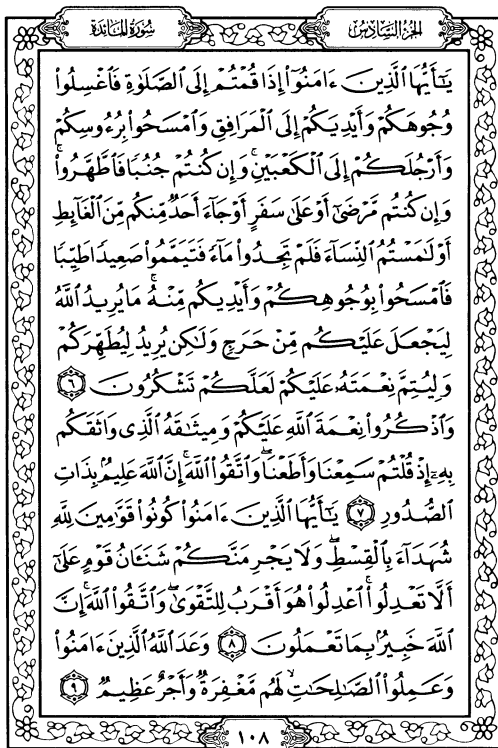 الجزء السادس
سورة المائدة
يَـٰٓأَيُّهَا ٱلَّذِينَ ءَامَنُوٓا۟ إِذَا قُمْتُمْ إِلَى ٱلصَّلَوٰةِ فَٱغْسِلُوا۟
وُجُوهَكُمْ وَأَيْدِيَكُمْ إِلَى ٱلْمَرَافِقِ وَٱمْسَحُوا۟ بِرُءُوسِكُمْ
وَأَرْجُلَكُمْ إِلَى ٱلْكَعْبَيْنِ ۚ وَإِن كُنتُمْ جُنُبًا فَٱطَّهَّرُوا۟ ۚ
وَإِن كُنتُم مَّرْضَىٰٓ أَوْ عَلَىٰ سَفَرٍ أَوْ جَآءَ أَحَدٌ مِّنكُم مِّنَ ٱلْغَآئِطِ
أَوْ لَـٰمَسْتُمُ ٱلنِّسَآءَ فَلَمْ تَجِدُوا۟ مَآءً فَتَيَمَّمُوا۟ صَعِيدًا طَيِّبًا
فَٱمْسَحُوا۟ بِوُجُوهِكُمْ وَأَيْدِيكُم مِّنْهُ ۚ مَا يُرِيدُ ٱللَّهُ
لِيَجْعَلَ عَلَيْكُم مِّنْ حَرَجٍ وَلَـٰكِن يُرِيدُ لِيُطَهِّرَكُمْ
وَلِيُتِمَّ نِعْمَتَهُۥ عَلَيْكُمْ لَعَلَّكُمْ تَشْكُرُونَ ٦
وَٱذْكُرُوا۟ نِعْمَةَ ٱللَّهِ عَلَيْكُمْ وَمِيثَـٰقَهُ ٱلَّذِى وَاثَقَكُم
بِهِۦٓ إِذْ قُلْتُمْ سَمِعْنَا وَأَطَعْنَا ۖ وَٱتَّقُوا۟ ٱللَّهَ ۚ إِنَّ ٱللَّهَ عَلِيمٌۢ بِذَاتِ
ٱلصُّدُورِ ٧ يَـٰٓأَيُّهَا ٱلَّذِينَ ءَامَنُوا۟ كُونُوا۟ قَوَّٰمِينَ لِلَّهِ
شُهَدَآءَ بِٱلْقِسْطِ ۖ وَلَا يَجْرِمَنَّكُمْ شَنَـَٔانُ قَوْمٍ عَلَىٰٓ
أَلَّا تَعْدِلُوا۟ ۚ ٱعْدِلُوا۟ هُوَ أَقْرَبُ لِلتَّقْوَىٰ ۖ وَٱتَّقُوا۟ ٱللَّهَ ۚ إِنَّ
ٱللَّهَ خَبِيرٌۢ بِمَا تَعْمَلُونَ ٨ وَعَدَ ٱللَّهُ ٱلَّذِينَ ءَامَنُوا۟
وَعَمِلُوا۟ ٱلصَّـٰلِحَـٰتِ ۙ لَهُم مَّغْفِرَةٌ وَأَجْرٌ عَظِيمٌ ٩
١٠٨